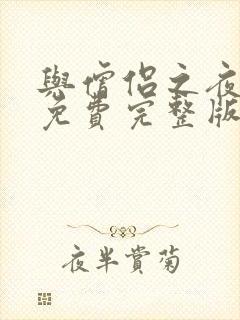 與僧侣之夜
免費完整版
夜半赏菊